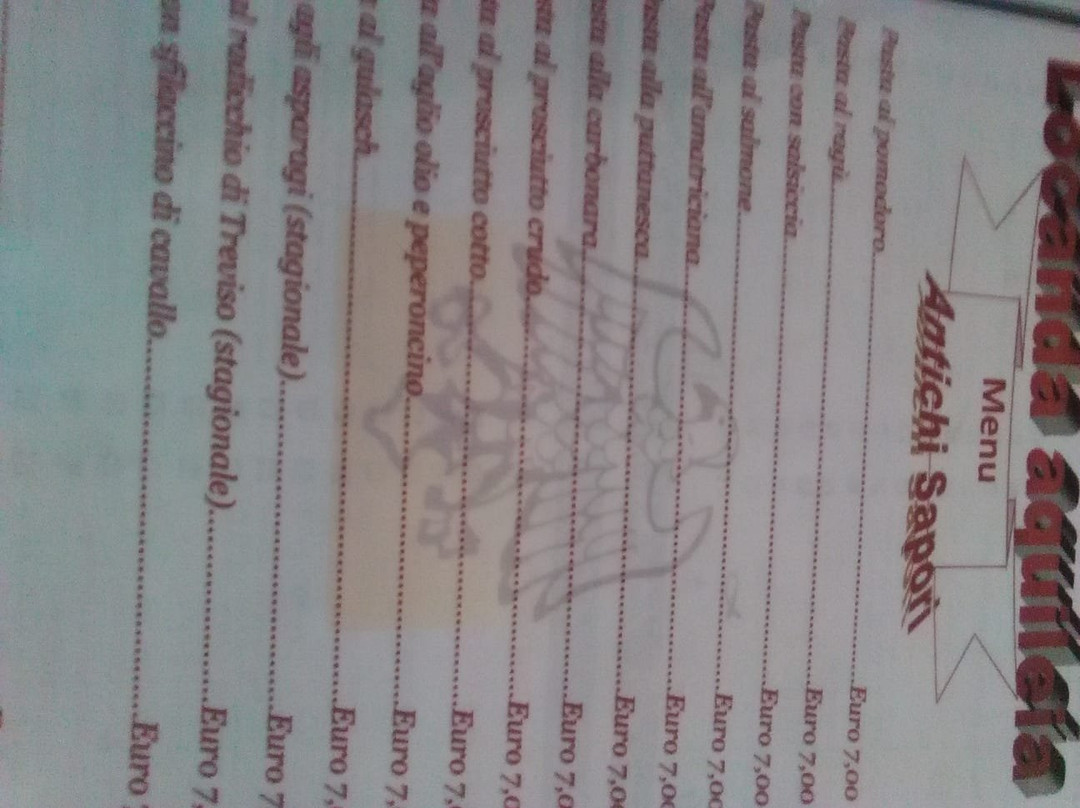 Locanda aquileia
Menu
Antichi Sapori
Pasta al pomodoro Euro 7,00
Pasta al ragù Euro 7,00
Pasta con salsiccia Euro 7,00
Pasta al salmone Euro 7,00
Pasta all'amatriciana Euro 7,00
Pasta alla puttanesca Euro 7,00
asta alla carbonara Euro 7,0
sta al prosciutto crudo Euro 7,0
ta al prosciutto cotto Euro 7,
a all'aglio olio e peperoncino Euro 7,
al gulasch Euro 7,
agli asparagi (stagionale) Euro 7
al radicchio di Treviso (stagionale) Euro 7,
on sfilaccino di cavallo Euro